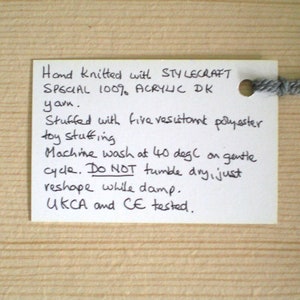 Hand knitted with STYLECRAFT
SPECIAL 100% ACRYLIC DK
yarn.
Stuffed with fire resistant polyester
toy stuffing
Machine wash at 40 degC on gentle
cycle. DO NOT tumble dry, just
reshape while damp.
UKCA and CE tested.